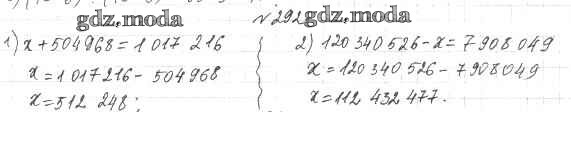 gdz.moda
№292
gdz.moda
1) x+504968=1 017 216
x=1 017216- 504968
x=512 248;
2) 120 340 526-x=7 908 049
x=120 340 526-7 908 049
x=112 432 477.